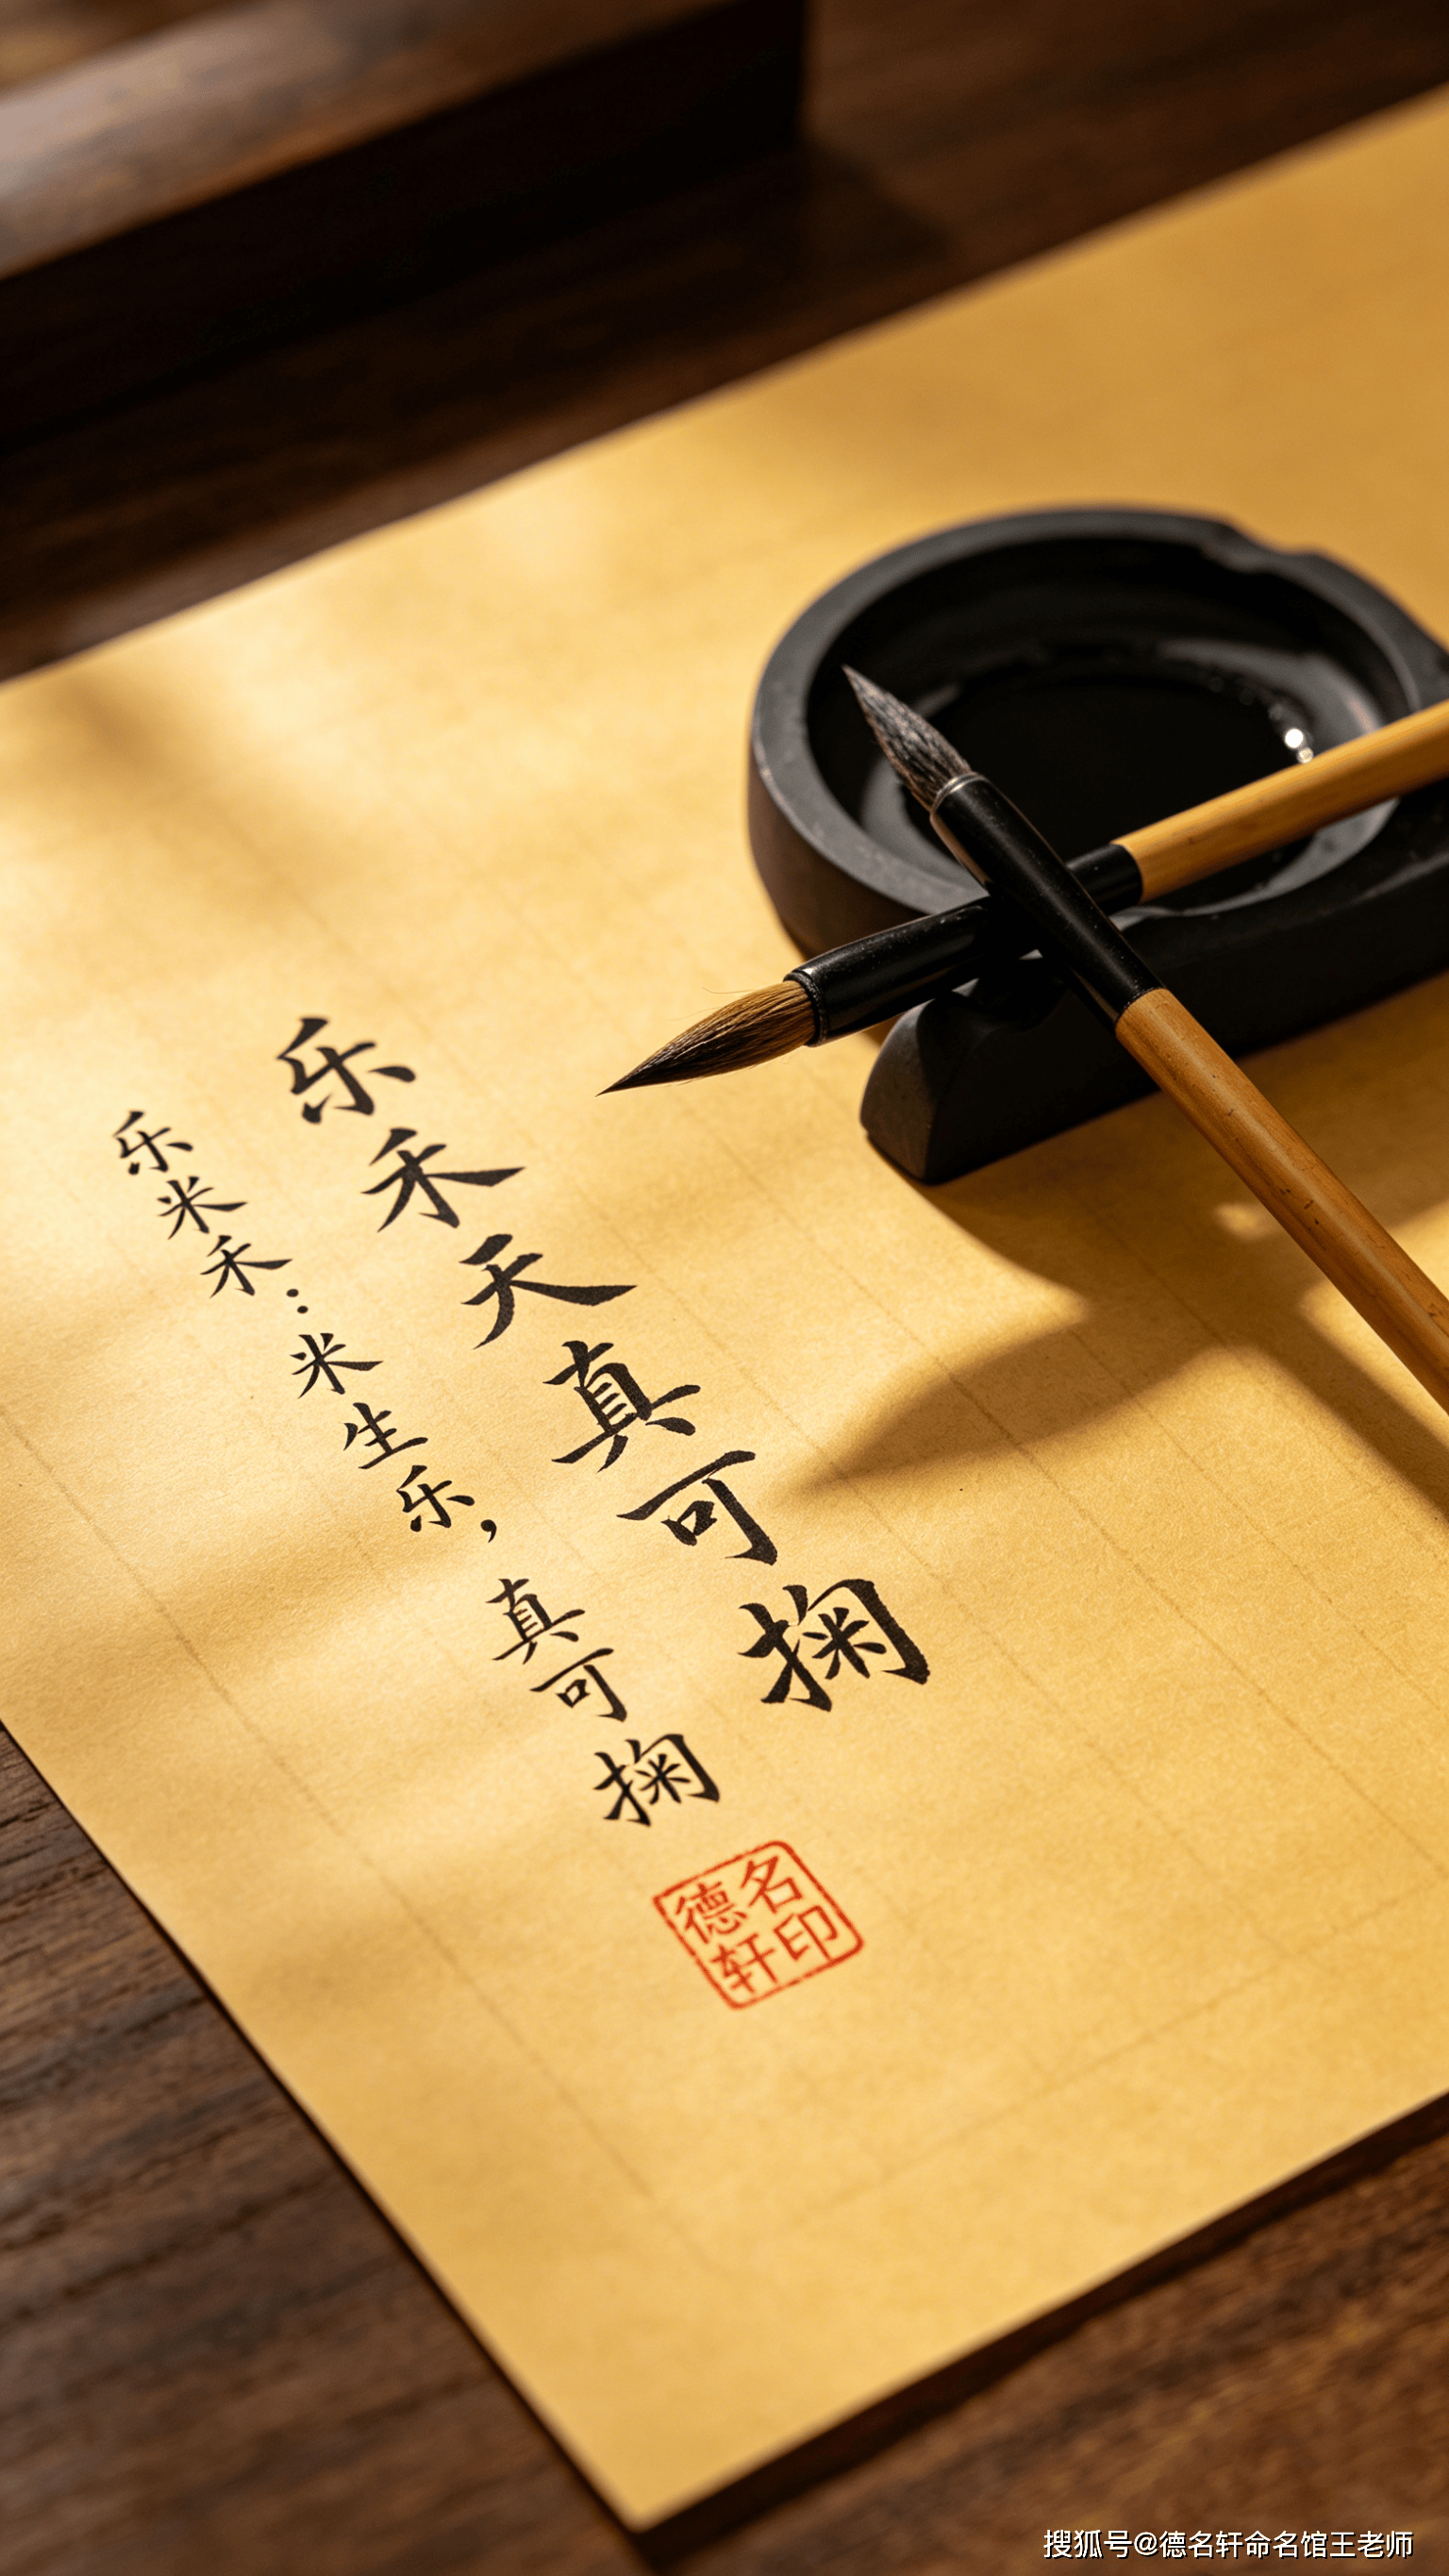 乐禾天真可掬
乐米禾：米生乐，真可掬
德名
轩印
搜狐号@德名轩命名馆王老师